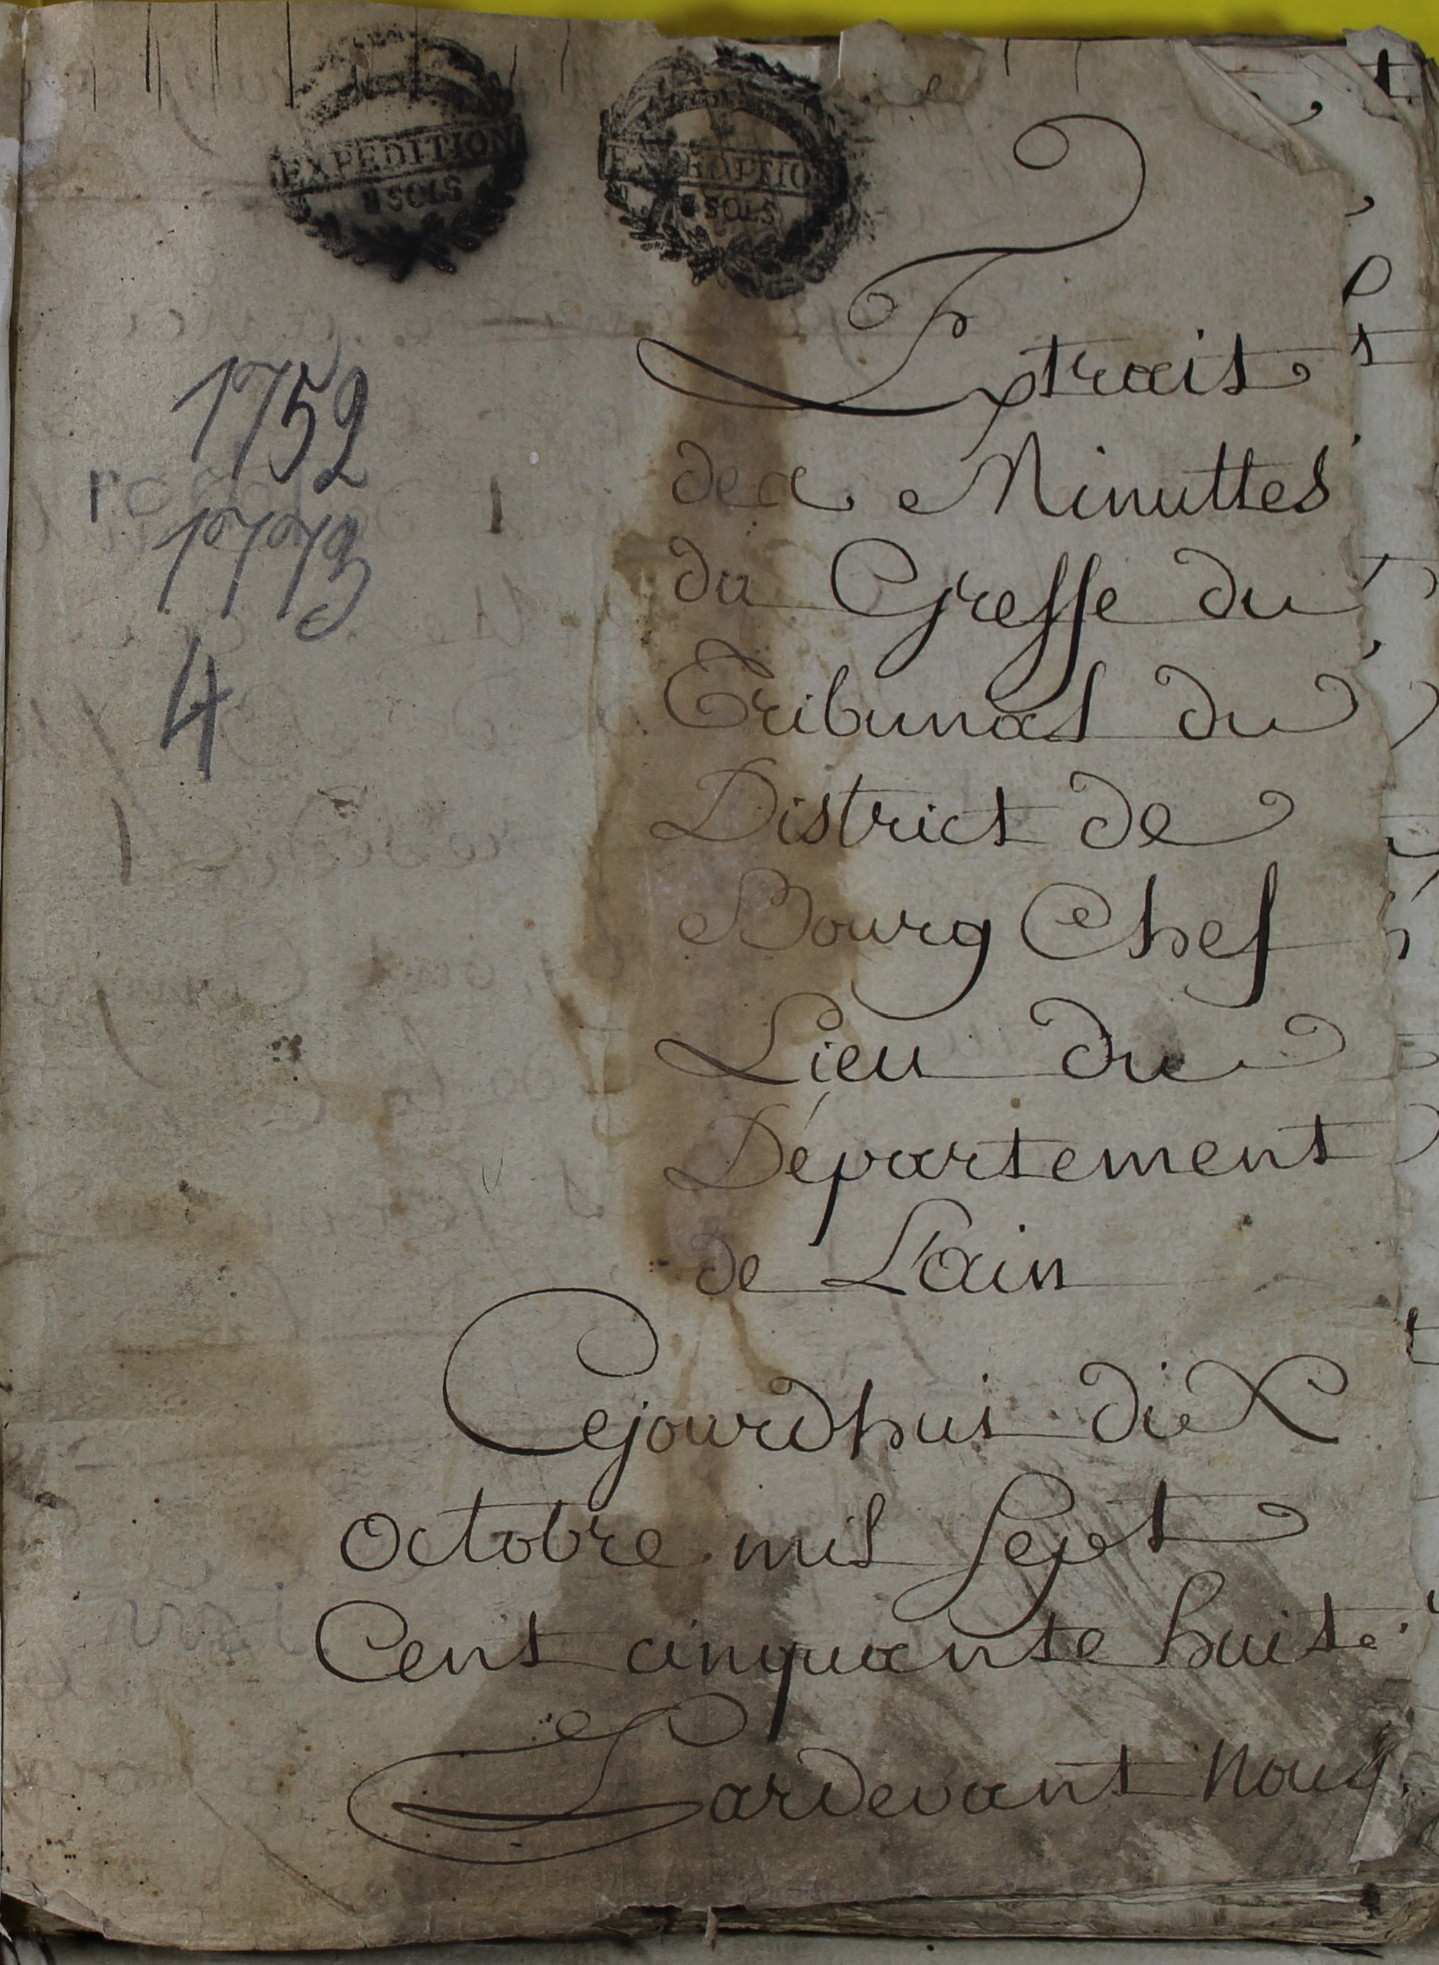 EXPEDITION
SOLS
SOLS
1752
1773
4
Extrait
des Minuttes
du Greffe du
Tribunal du
District de
Bourg Chef
Lieu du
Département
de L'ain
Cejourdhui diX
octobre mil Sept
Cent cinquante huit
Pardevant Nous